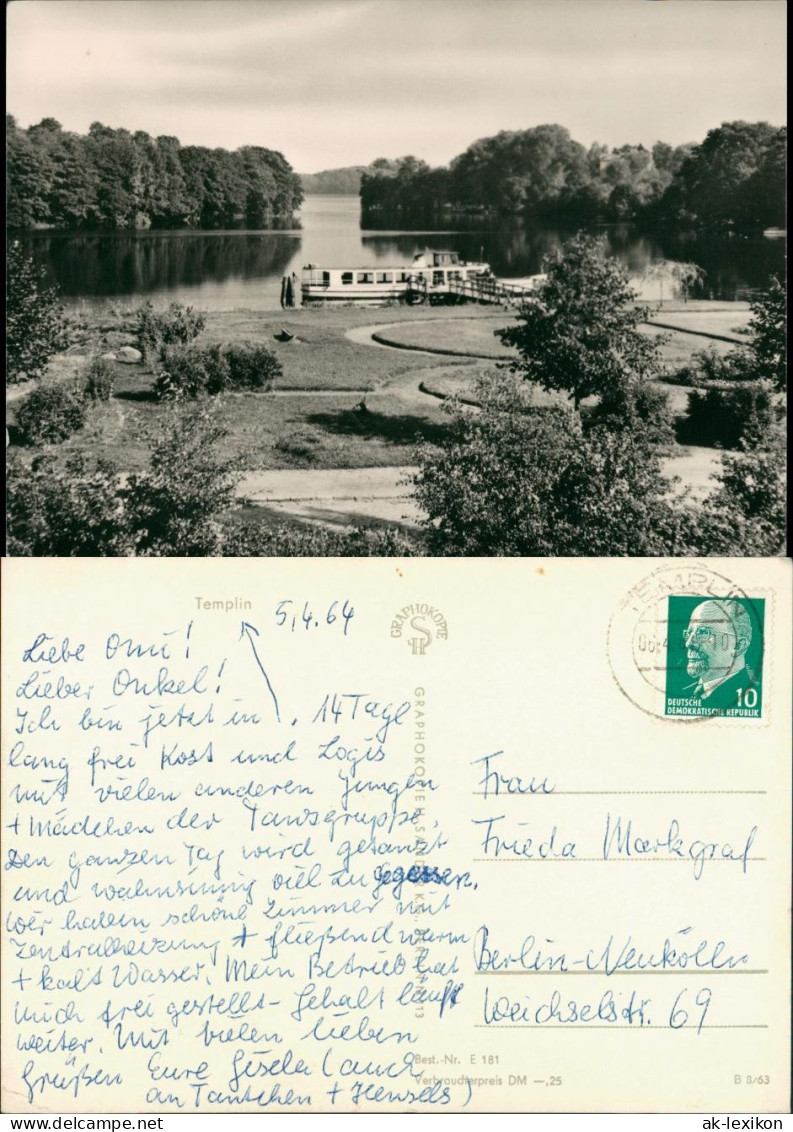 Templin
5,4.64
Liebe Omi!
Lieber Onkel!
Ich bin jetzt in . 14 Tage
lang frei Kost und Logis
mit vielen anderen Jungen
+ Mädchen der Tanzgruppe.
Den ganzen Tag wird getanzt
und wahnsinnig viel zu gegessen.
Wir haben schöne Zimmer mit
Zentralheizung + fließend warm
+ kalt Wasser. Mein Betrieb hat
mich frei gestellt - Gehalt läuft
weiter. Mit vielen lieben
Grüßen Eure Gisela (auch
an Tantchen + Hensels)
GRAPHOKOPIE
TEMPLIN
10
DEUTSCHE
DEMOKRATISCHE REPUBLIK
Frau
Frieda Markgraf
Berlin-Neukölln
Weichselstr. 69
Best.-Nr. E 181
Verbraucherpreis DM —,25
B 8/63
ak-lexikon